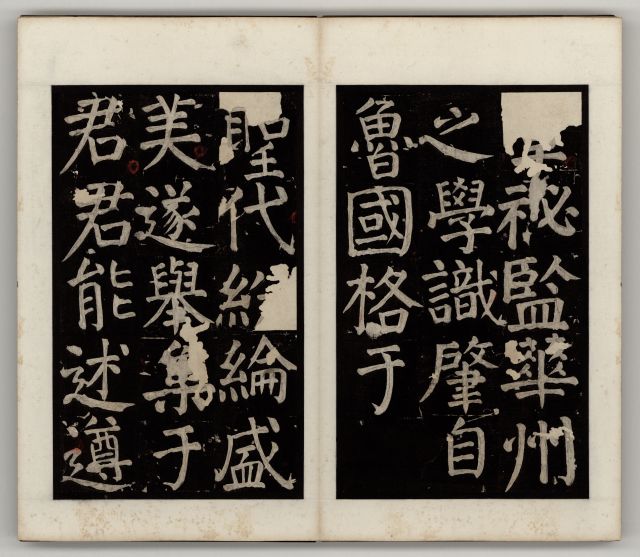 秘監華州
之學識肇自
魯國格于
聖代絲綸盛
美遂舉集于
君君能述遵